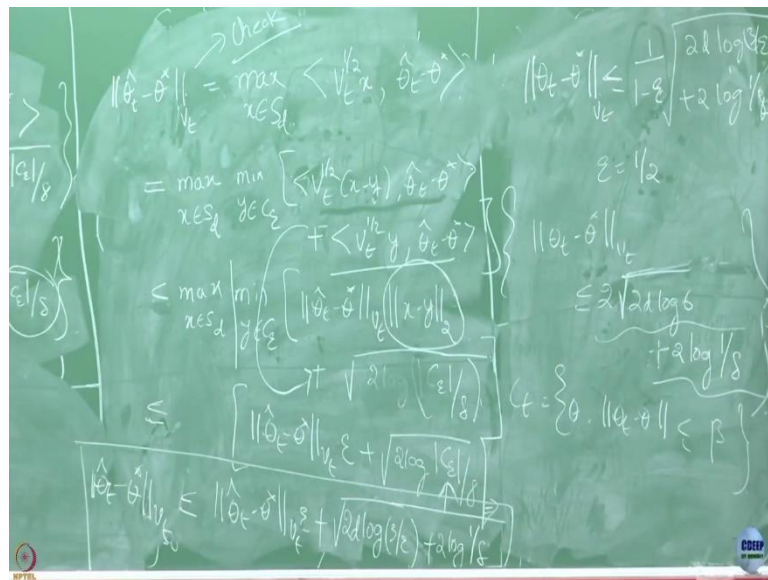 >
|Cε|/δ
Cε|/δ
check
||θ̂t-θ*||Vt = max x∈Sd < Vt^{1/2} x, θ̂t-θ* >
= max x∈Sd min y∈Cε [ < Vt^{1/2} (x-y), θ̂t-θ* >
+ < Vt^{1/2} y, θ̂t-θ* >
≤ max x∈Sd min y∈Cε [ ||θ̂t-θ*||Vt ||x-y||2
+ √2log(|Cε|/δ)
≤ [ ||θ̂t-θ*||Vt ε + √2log |Cε|/δ ]
||θ̂t-θ*||Vt ≤ ||θ̂t-θ*||Vt ε + √2d log(3/ε) + 2log 1/δ
||θt-θ*||Vt ≤ 1/1-ε √2d log(3/ε)
+2 log 1/δ
ε = 1/2
||θt-θ*||Vt
≤ 2√2d log 6
+ 2 log 1/δ
Ct = { θ: ||θt-θ|| ≤ β }
NPTEL
CDEEP
IIT BOMBAY